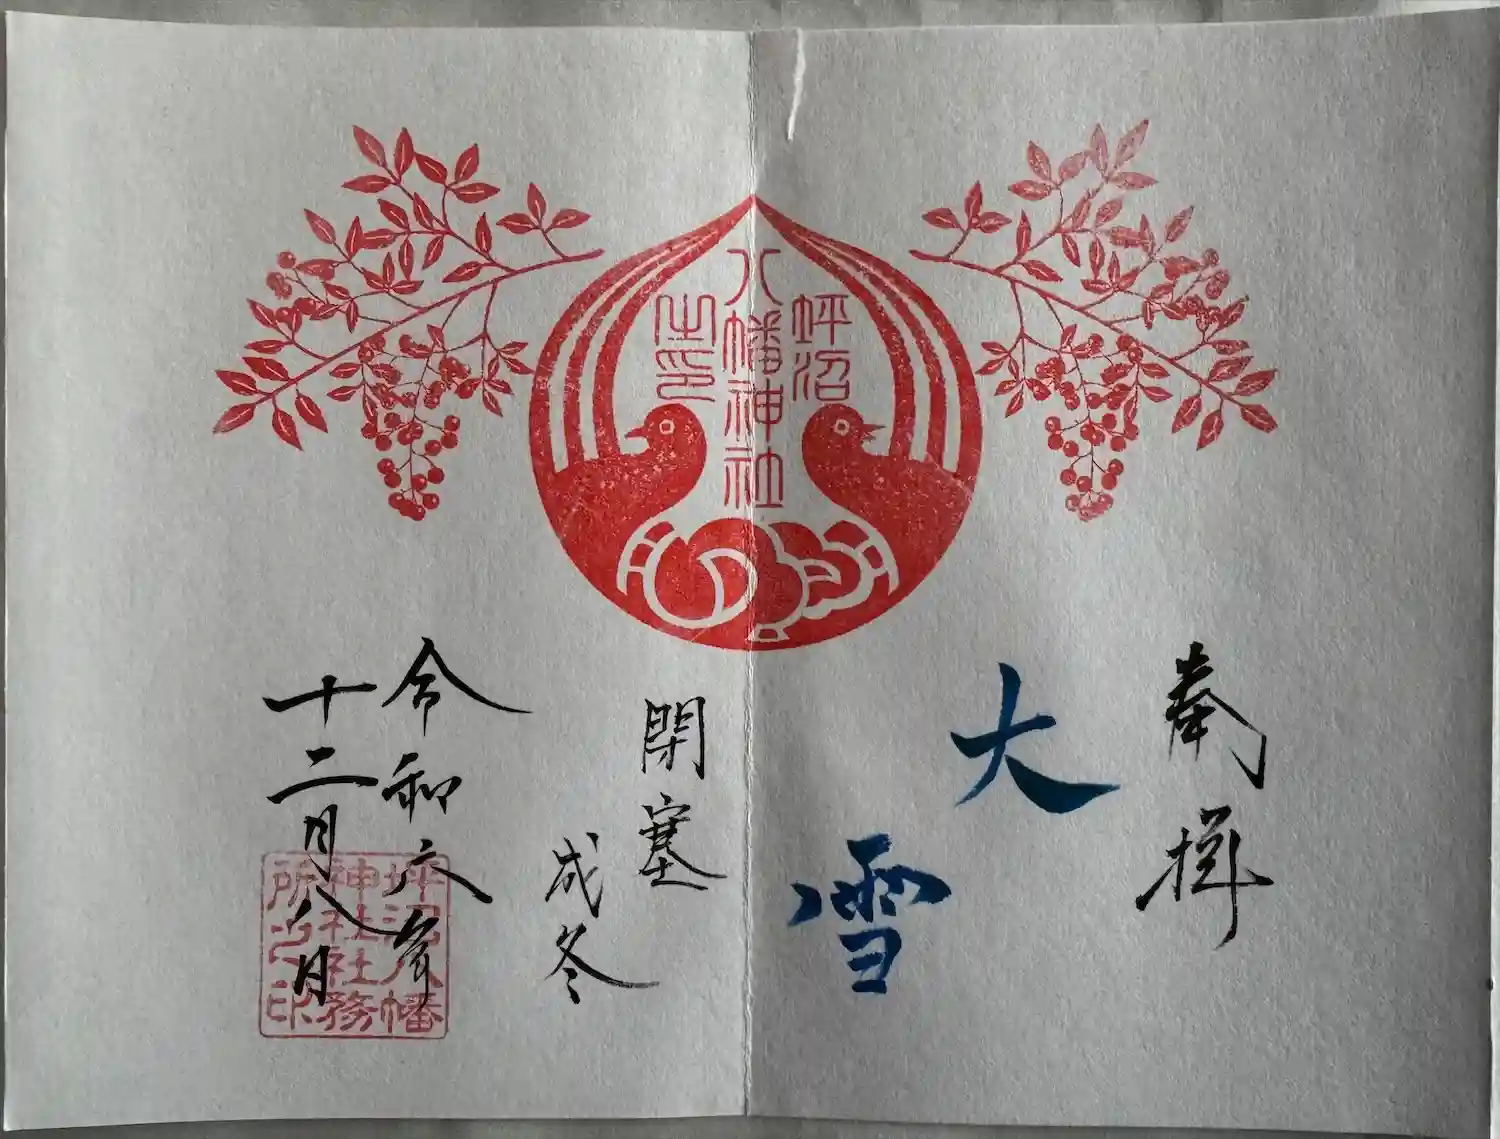 坪沼
八幡神社
之印
奉拝
大雪
閉塞
成冬
令和六年
十二月八日
坪沼八幡
神社社務
所之印